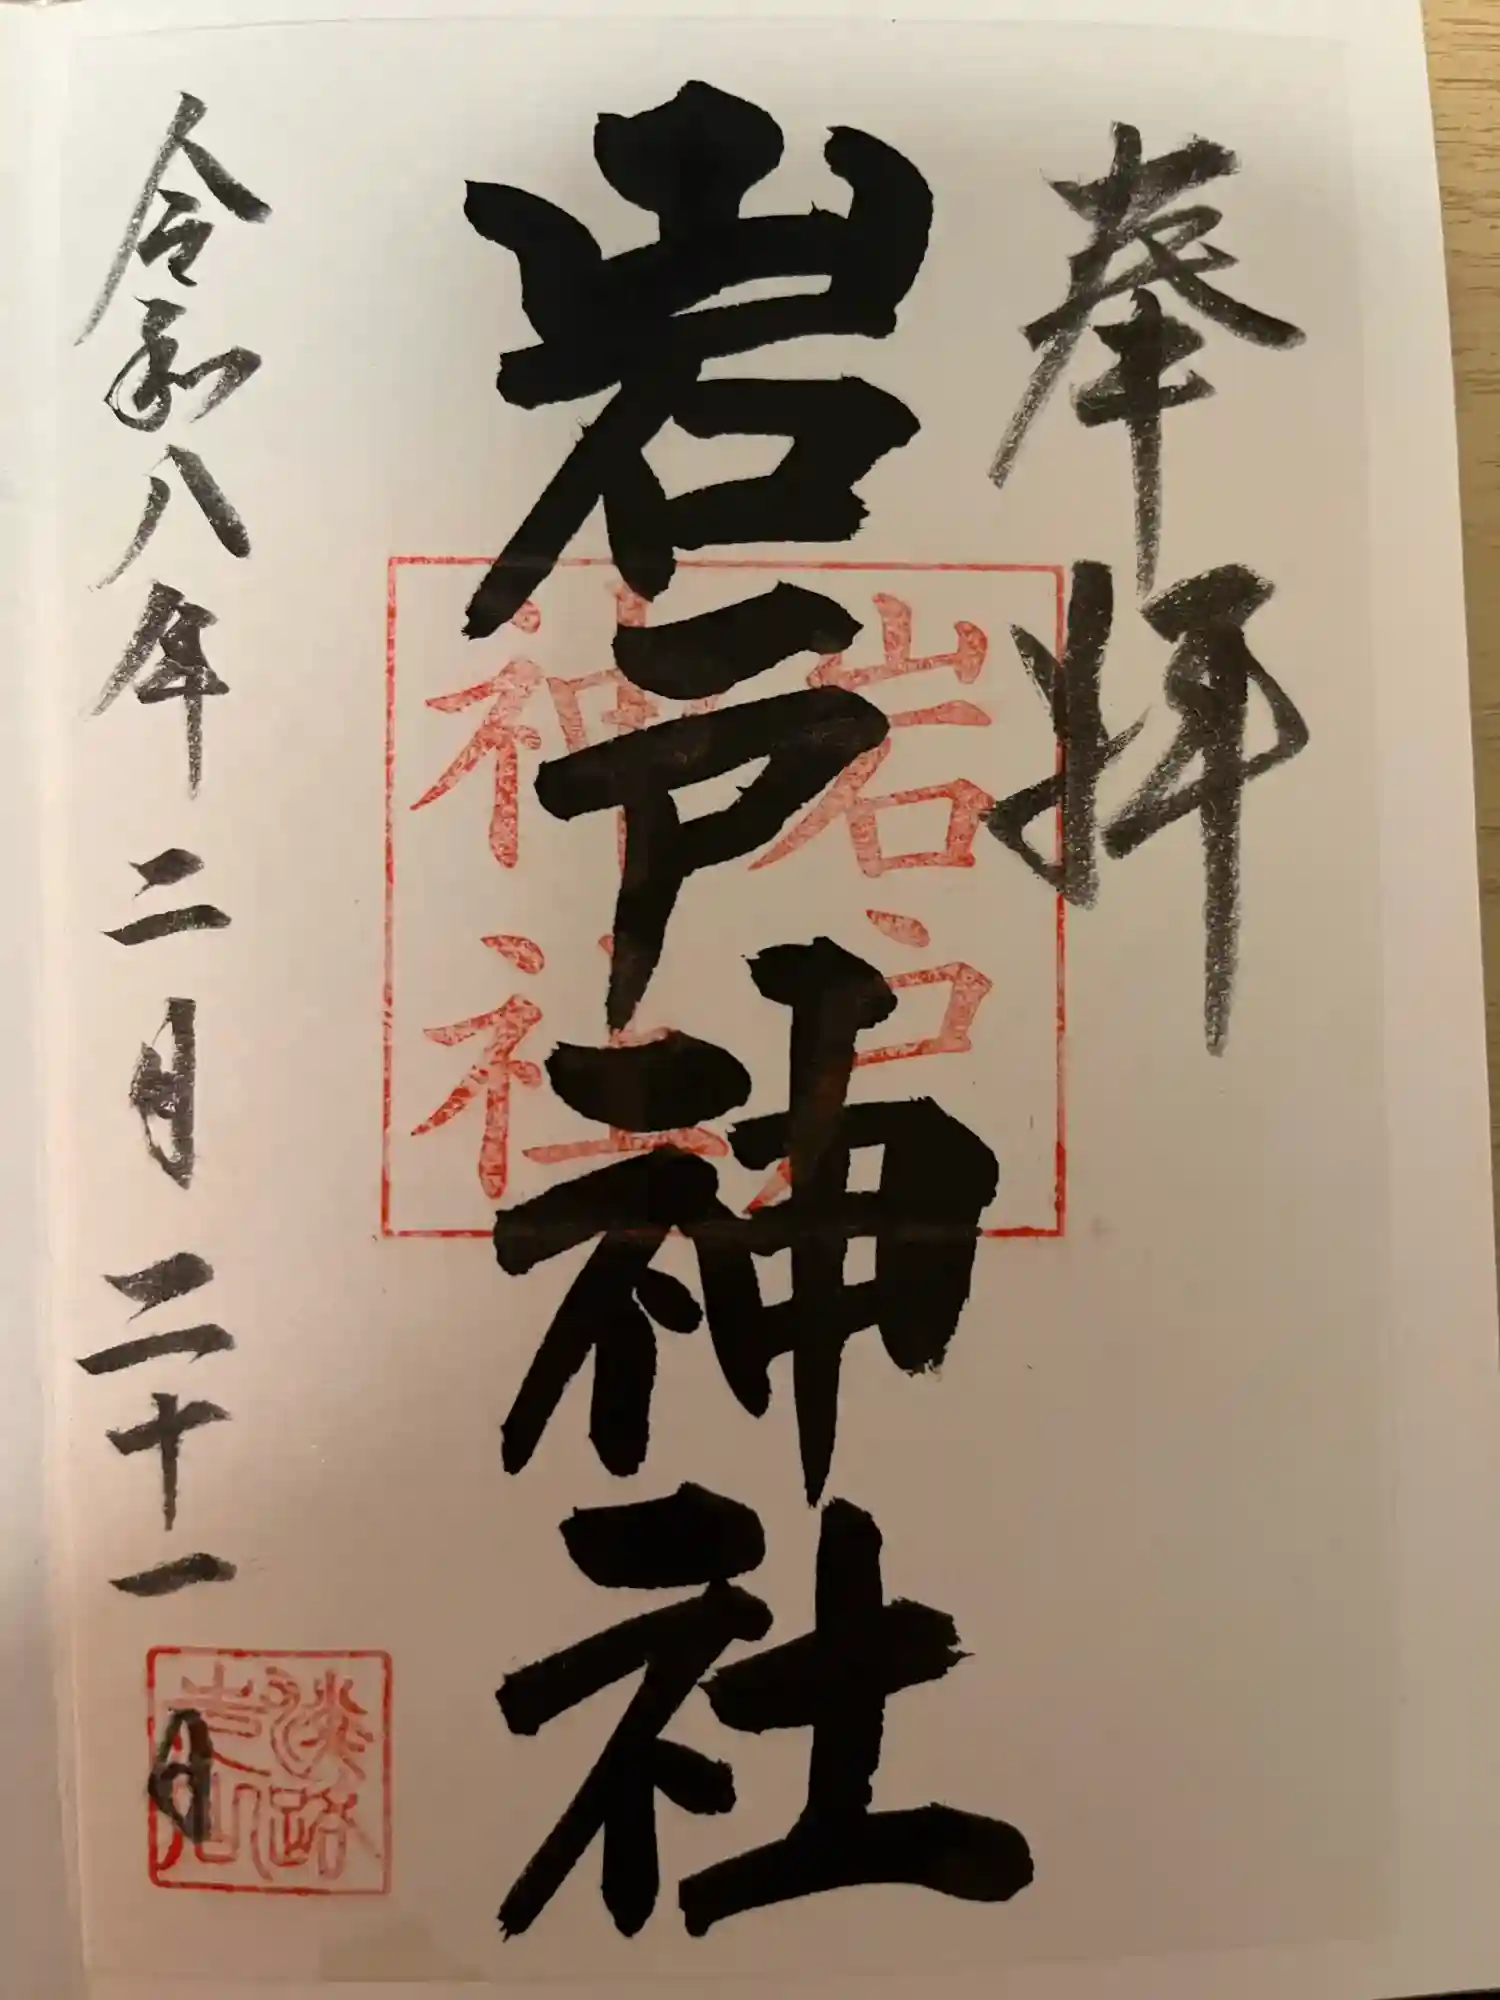 奉拝
岩戸神社
岩戸
神社
令和八年二月二十一日
淡路